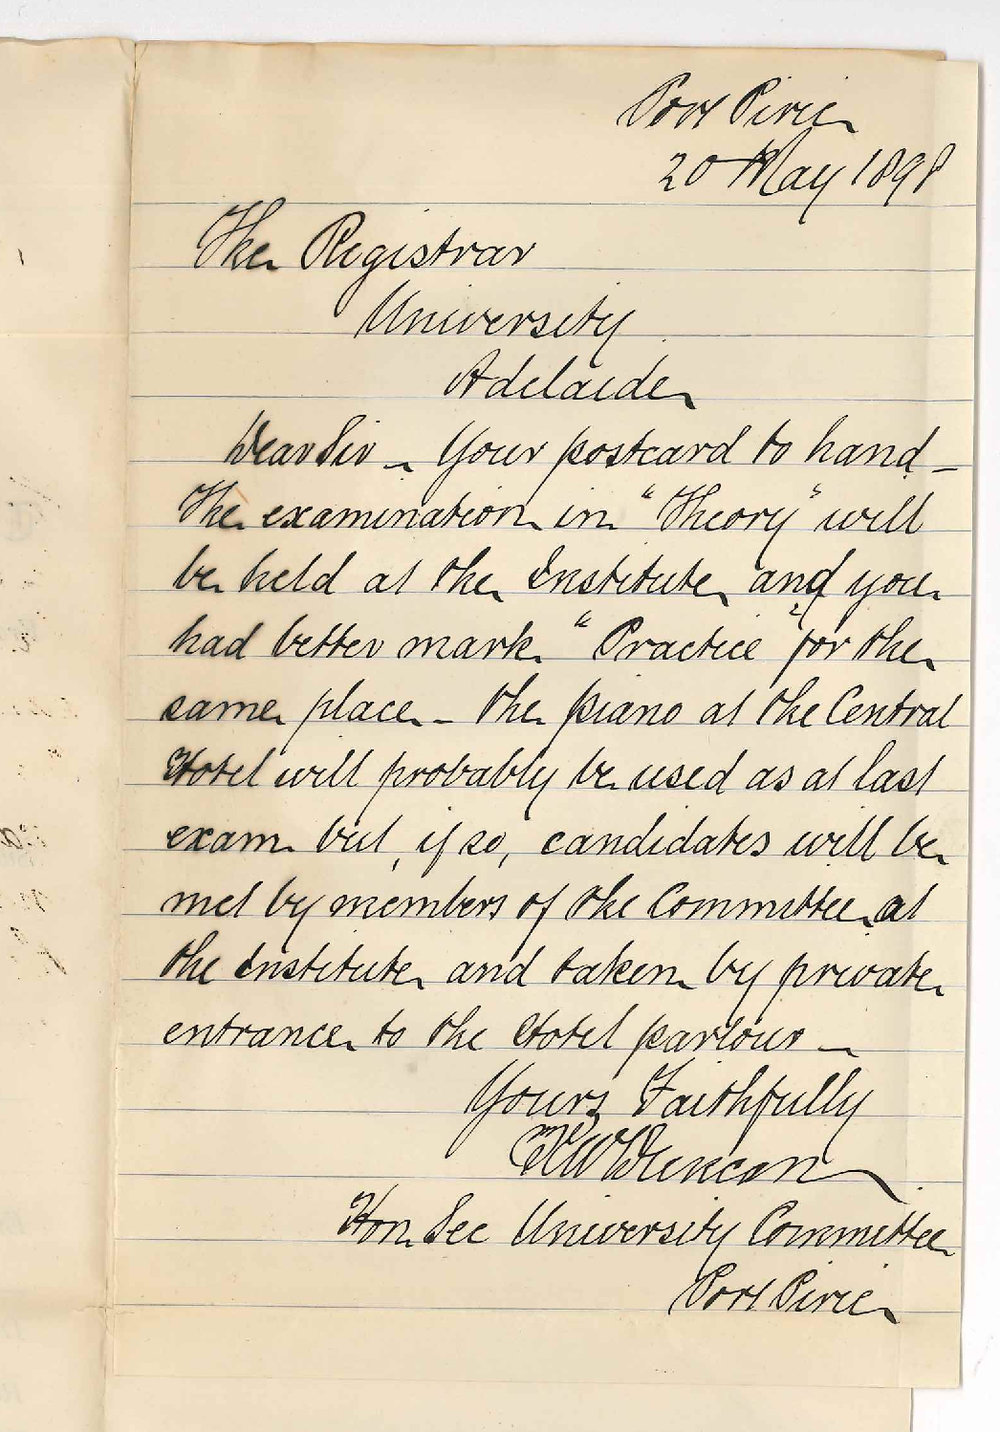 Port Pirie
20 May 1898
The Registrar
University
Adelaide
Dear Sir - Your postcard to hand -
The examination in "Theory" will
be held at the Institute and you
had better mark "Practice" for the
same place - the piano at the Central
Hotel will probably be used as at last
exam but, if so, candidates will be
met by members of the Committee at
the Institute and taken by private
entrance to the Hotel parlour -
Yours Faithfully
Duncan
Hon Sec University Committee
Port Pirie